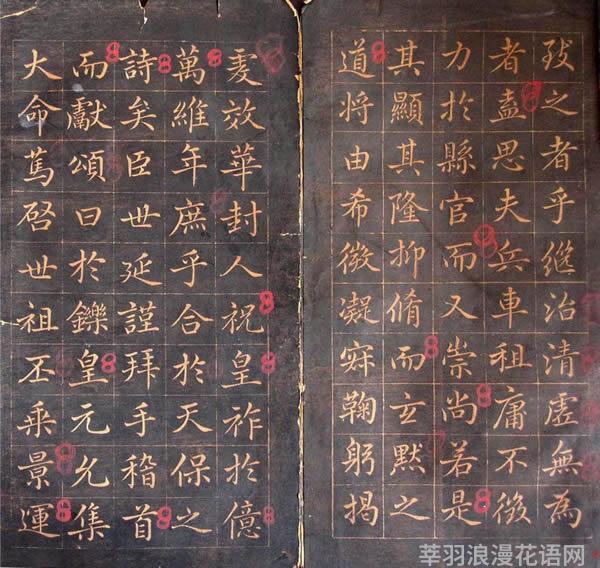 致之者乎継治清虛無為
者盍思夫兵車租庸不徵
力於縣官而又崇尚若是
其顯其隆抑脩而玄默之
道將由希微凝寂鞠躬揭
爰效華封人祝皇祚於億
萬維年庶乎合於天保之
詩矣臣世延謹拜手稽首
而獻頌曰於鑠皇元允集
大命篤啓世祖丕乘景運
莘羽浪漫花语网